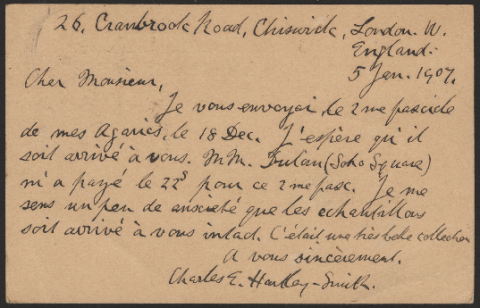 26, Cranbrook Road, Chiswick, London. W.
England.
5 Jan. 1907.
Cher Monsieur,
Je vous envoyai, le 2me fascicle
de mes Agarics, le 18 Dec. J'espère qu'il
soit arrivé à vous. MM. Dulau (Soho Square)
m'a payé le 22s pour ce 2me fasc. Je me
sens un peu de anxieté que les echantillons
soit arrivé à vous intact. C'était une très belle collection
A vous sincèrement.
Charles E. Hartley-Smith.